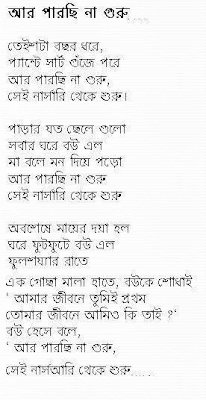 আর পারছি না গুরু.....
তেইশটা বছর ধরে,
প্যান্টে সার্ট গুঁজে পরে
আর পারছি না গুরু
সেই নার্সারি থেকে শুরু।
পাড়ার যত ছেলে গুলো
সবার ঘরে বউ এল
মা বলে মন দিয়ে পড়ো
আর পারছি না গুরু
সেই নার্সারি থেকে শুরু
অবশেষে মায়ের দয়া হল
ঘরে ফুটফুটে বউ এল
ফুলশয্যার রাতে
এক গোছা মালা হাতে, বউকে শোধাই
‘ আমার জীবনে তুমিই প্রথম
তোমার জীবনে আমিও কি তাই ?’
বউ হেসে বলে,
‘ আর পারছি না গুরু,
সেই নার্সআরি থেকে শুরু.....